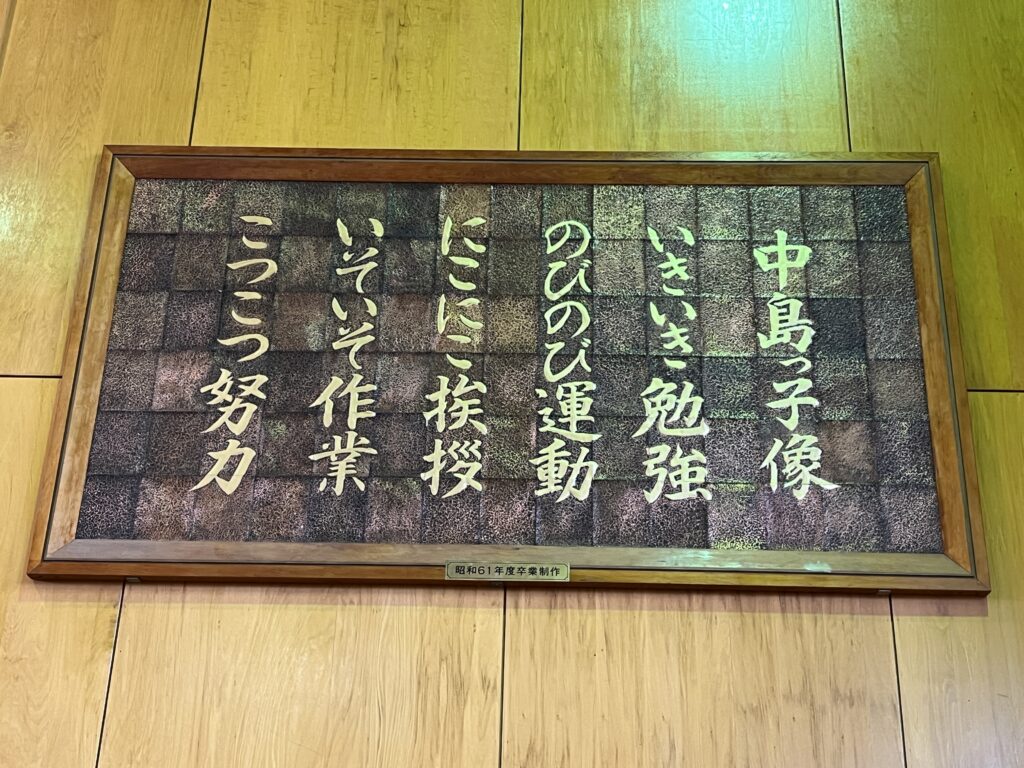 中島っ子像
いきいき勉強
のびのび運動
にこにこ挨拶
いそいそ作業
こつこつ努力
昭和61年度卒業制作